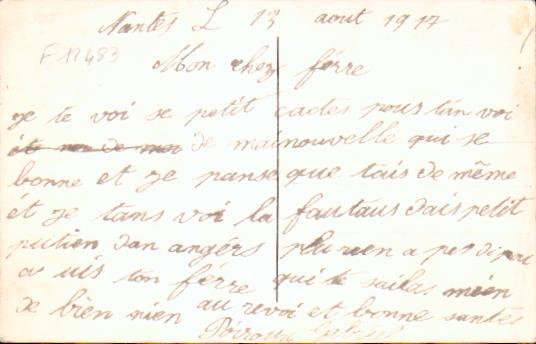 Nantes L 13 aout 1917
F12483
Mon cher férre
Je te voi se petit cactes pous tan voi
de mai nouvelle qui se
bonne et je panse que tais de même
ét je tans voi la fautaus dais petit
putien dan angérs plu rien a pes di pou
a uis ton férre qui te sailas mien
de bien nien au revoi et bonne santés